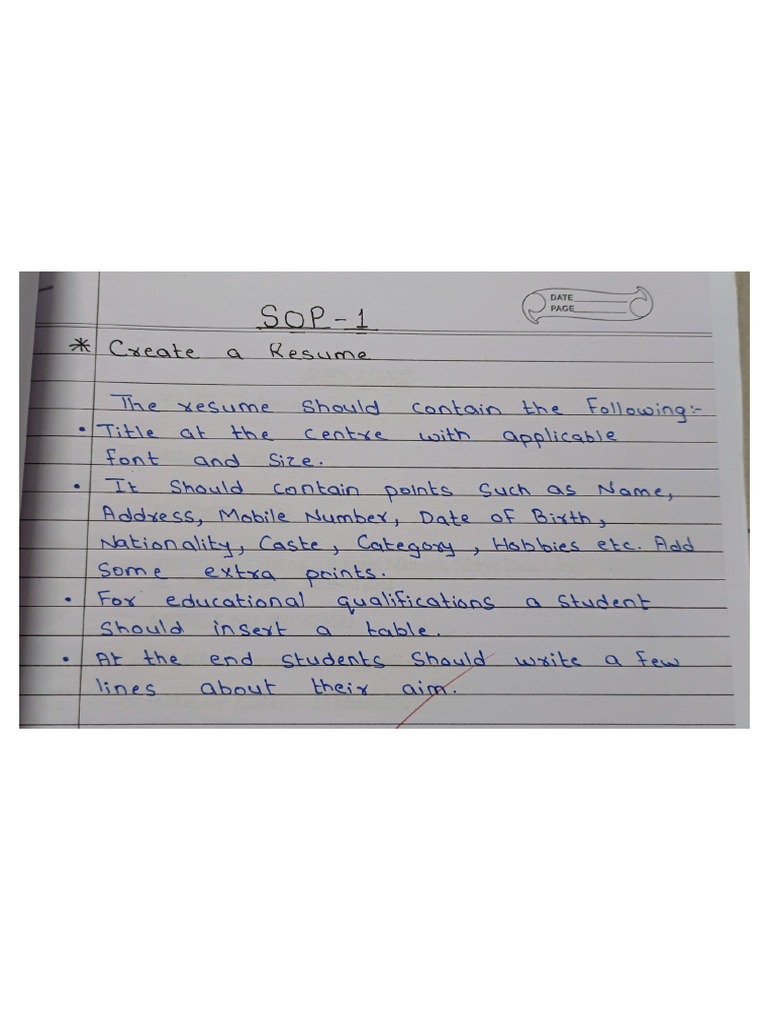 DATE
PAGE
SOP-1
* Create a Resume
The resume should contain the following:-
• Title at the centre with applicable
font and size.
• It should contain points such as Name,
Address, Mobile Number, Date of Birth,
Nationality, Caste, Category, Hobbies etc. Add
some extra points.
• For educational qualifications a student
should insert a table.
• At the end students should write a few
lines about their aim.